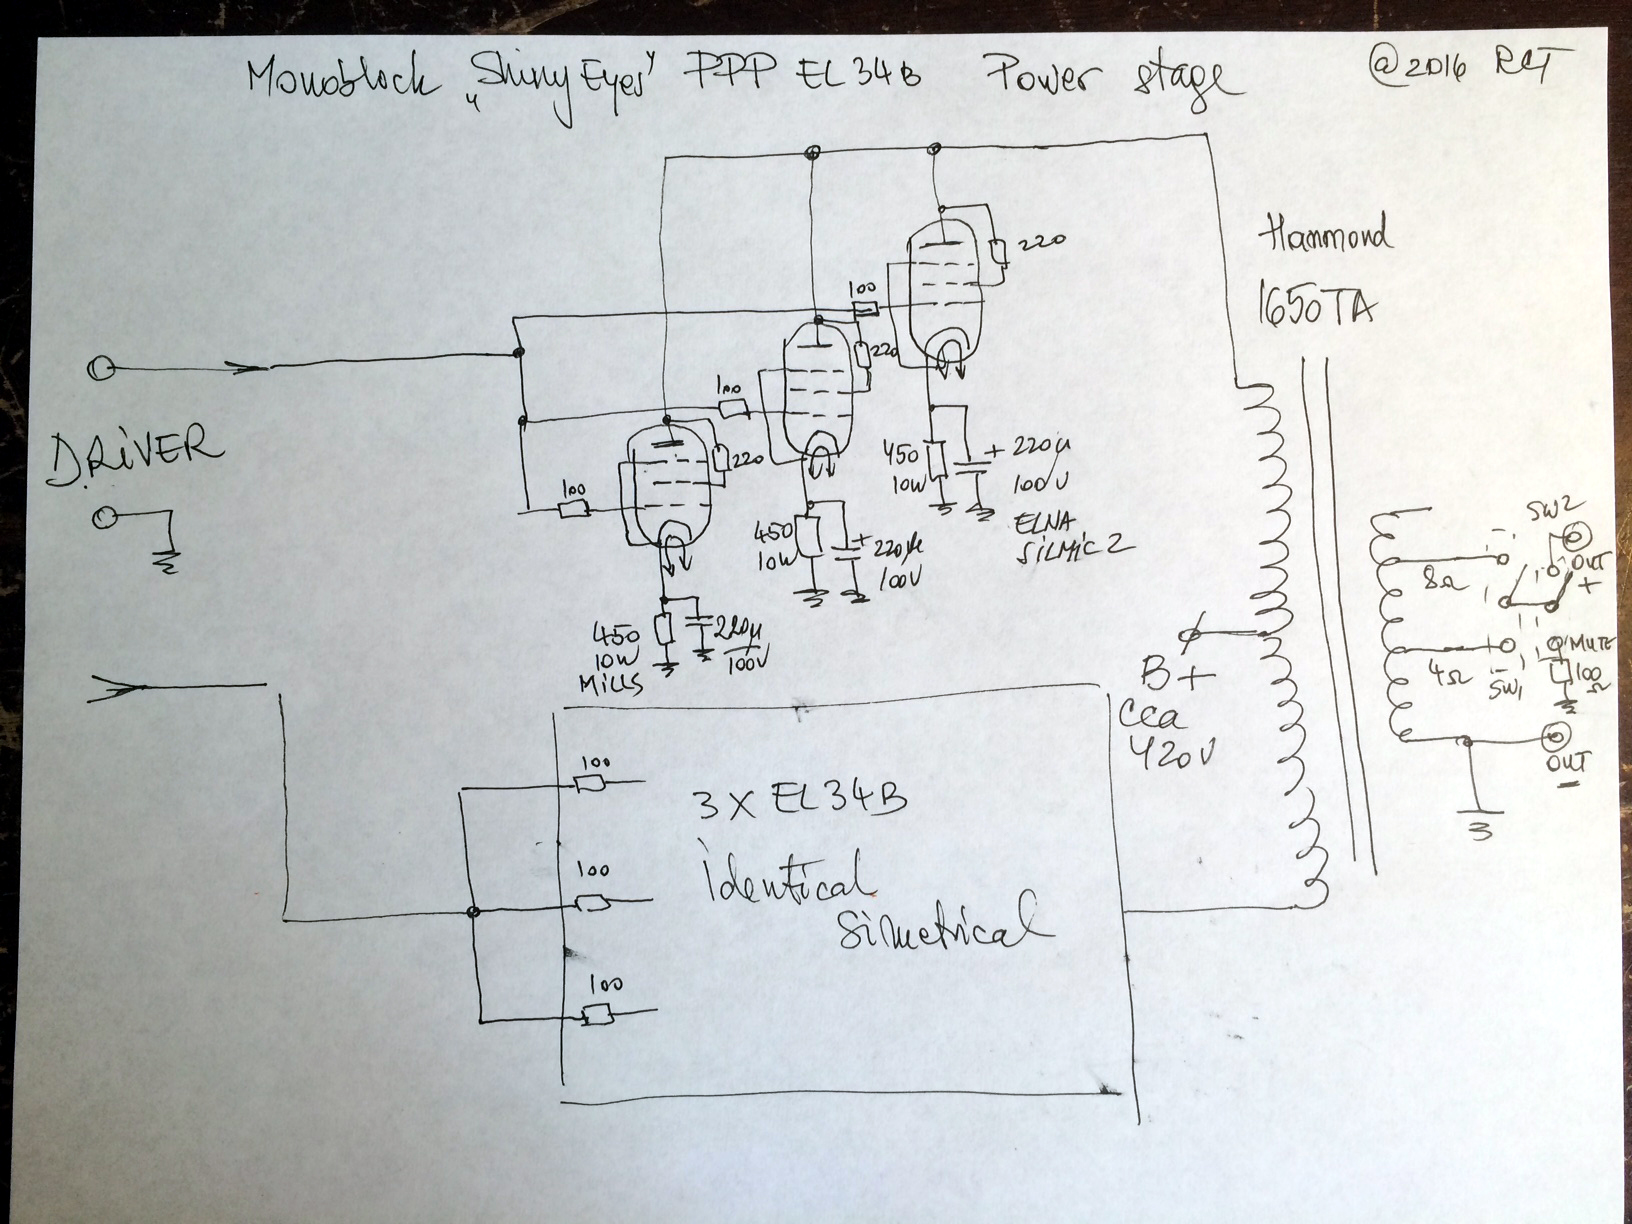 Monoblock „Shiny Eyes" PPP EL34B Power stage @2016 RCT
Hammond
1650TA
220
100
220
100
220
100
DRIVER
450
10W
+ 220µ
100V
ELNA
SILMIC 2
450
10W
+ 220µ
100V
450
10W
MILLS
220µ
100V
SW2
OUT
+
8Ω
4Ω
SW1
MUTE
100
Ω
OUT
–
B+
cca
420V
100
100
100
3 X EL34B
identical
Simetrical